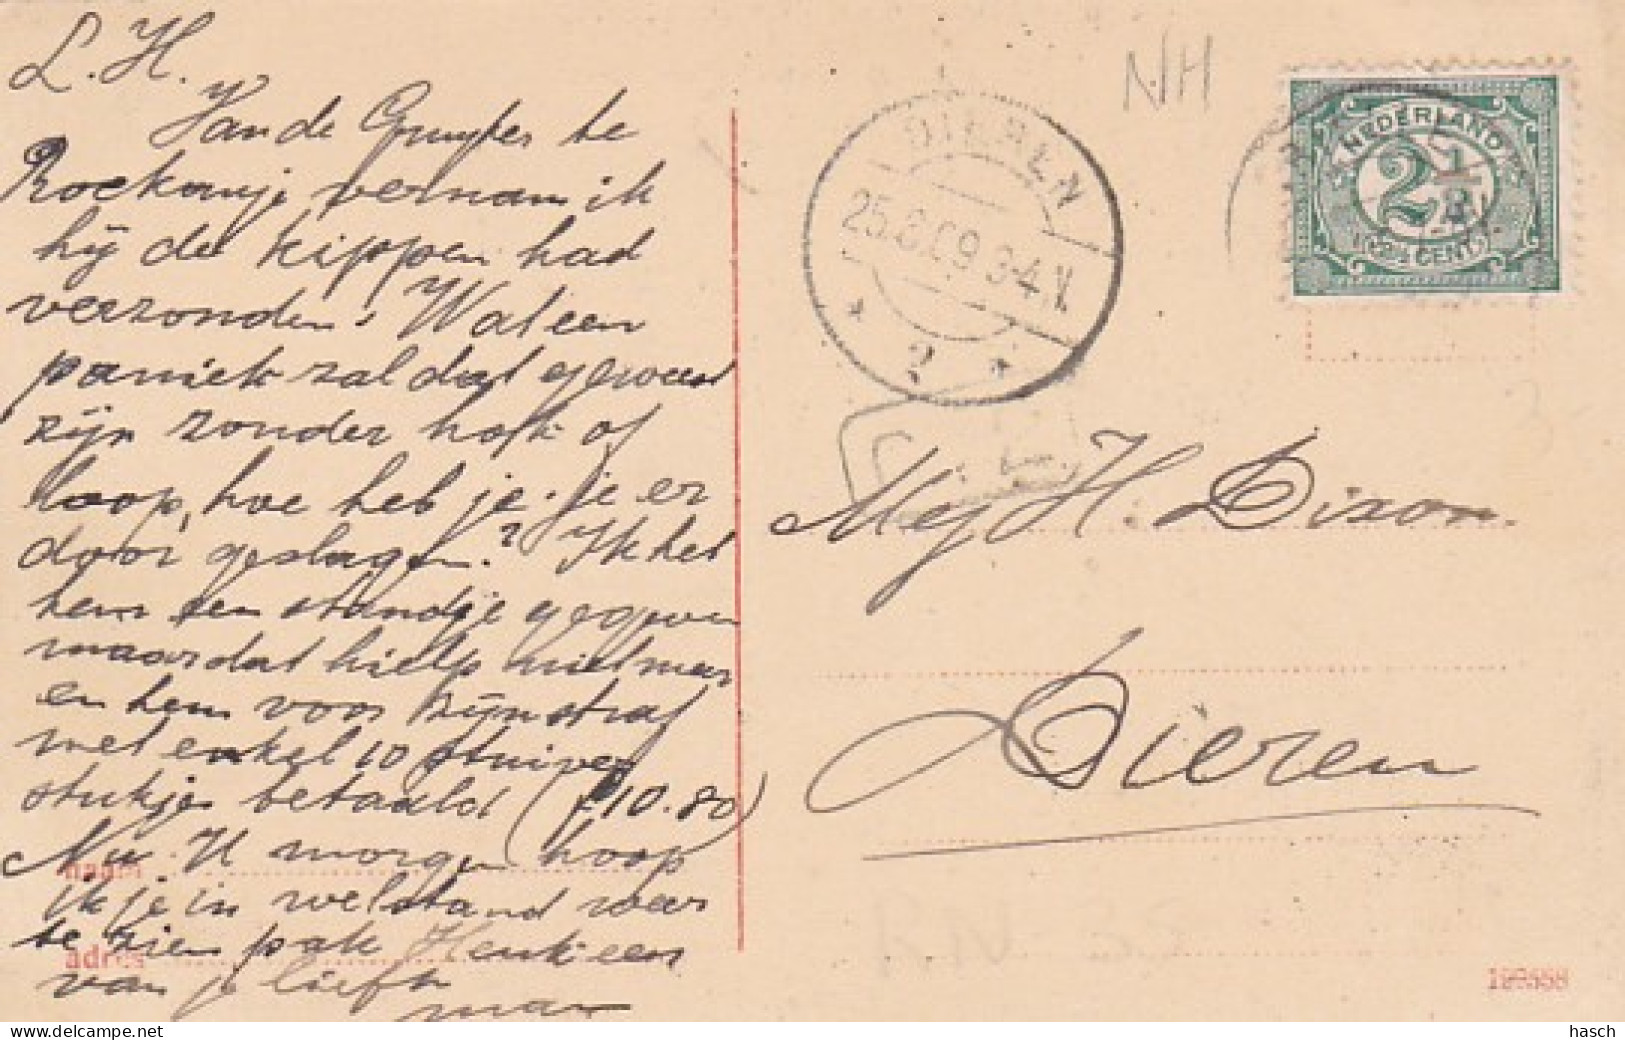 L. H.
Van de Gruyter te
Rockanje vernam ik
hij de kippen had
verzonden! Wat een
paniek zal dat geweest
zijn zonder hok of
loop, hoe heb je je er
door geslagen? Ik heb
hem een standje gegeven
maar dat hielp niet meer
en hem voor
met enkel 10 stuiver
stukjes betaald (f 10.80)
Nu H morgen hoop
ik je in welstand weer
te zien pak Henk een
van je liefh
man
naam
adres
NH
DIEREN
25.8.09 3-4.V
2
NEDERLAND
2 1/2
CENT
Mej H. Dixon.
Dieren
199558
hasch